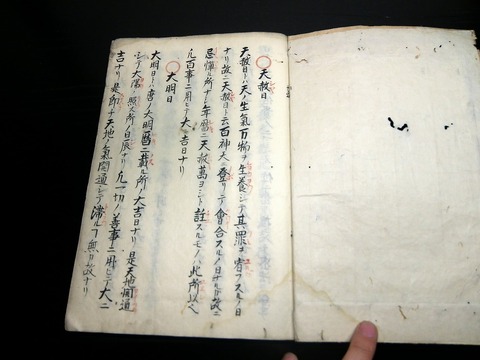 ○天赦日
天赦日トハ天ノ生氣万物ヲ生養シテ其罪ヲ宥フスルノ日
ナリ故ニ天赦ト云百神天ニ登リテ會合スルノ日ナルカ故ニ
忌憚ル所ナシ年暦ニ天赦萬ヨシト註スルモノハ此所以ヘ
凡百事ニ用ヒテ大吉日ナリ
○大明日
大明日トハ唐ノ大明暦ニ載ル所ノ大吉日ナリ是天地開通
シテ太陽ノ照ス所ノ日辰ナリ凡一切ノ善事ニ用ヒテ大ニ
吉ナリ是即チ天地ノ氣開通シテ滞ルコ無キ故ナリ